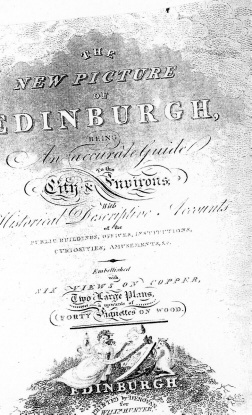 THE
NEW PICTURE
OF
EDINBURGH,
BEING
An accurate Guide
to the
City & Environs,
With
Historical Descriptive Accounts
of the
PUBLIC BUILDINGS, OFFICES, INSTITUTIONS,
CURIOSITIES, AMUSEMENTS, &c.
Embellished
with
SIX VIEWS ON COPPER,
Two Large Plans,
and upwards of
(FORTY Vignettes ON WOOD.)
EDINBURGH
PRINTED
For
WILL.M HUNTER,